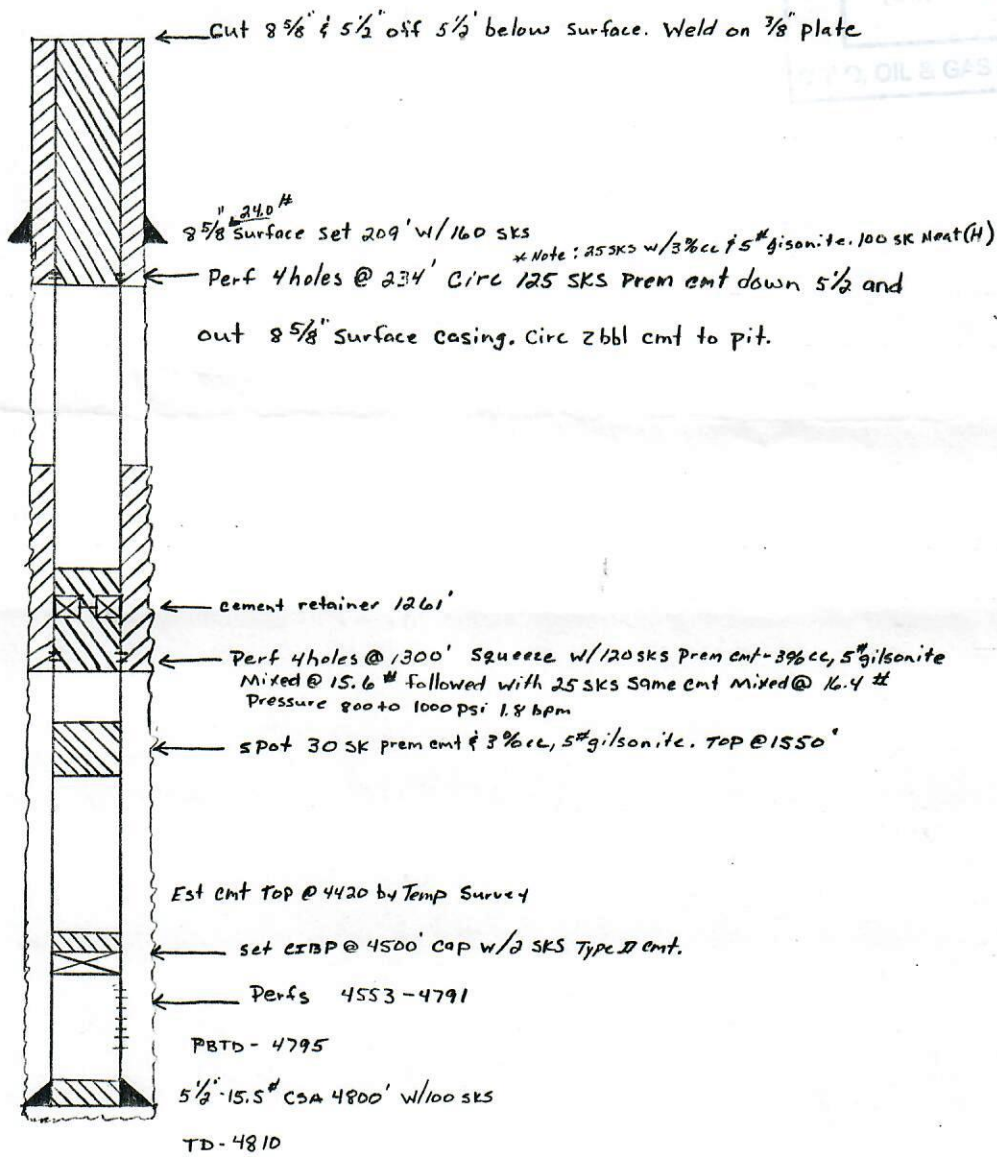 Cut 8 5/8" & 5 1/2" off 5 1/2' below surface. Weld on 3/8" plate
OIL & GAS
24.0#
8 5/8" surface set 209' w/160 sks
* Note: 25 sks w/3% cc & 5# gisonite. 100 sk Neat (H)
Perf 4 holes @ 234' Circ 125 SKS Prem cmt down 5 1/2 and
out 8 5/8" surface casing. Circ 2 bbl cmt to pit.
cement retainer 1261'
Perf 4 holes @ 1300' Squeeze w/120 sks Prem cmt - 3% cc, 5# gilsonite
Mixed @ 15.6 # followed with 25 sks same cmt Mixed @ 16.4 #
Pressure 800 to 1000 psi 1.8 bpm
spot 30 sk prem cmt & 3% cc, 5# gilsonite. TOP @ 1550'
Est cmt TOP @ 4420 by Temp Survey
set CIBP @ 4500' cap w/2 SKS Type II cmt.
Perfs 4553 - 4791
PBTD - 4795
5 1/2" - 15.5# CSA 4800' w/100 sks
TD - 4810